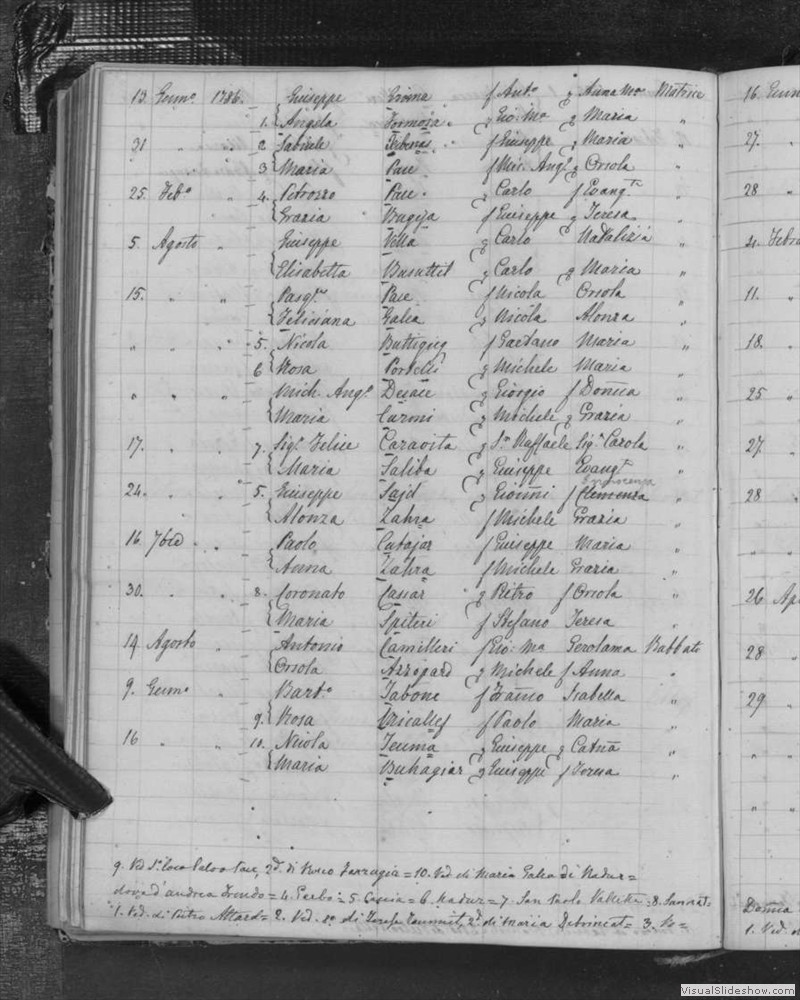 13 Genn.º 1786. Giuseppe f Ant.º g Anna M.ª Matrice 16
1. Angela Formosa g Gio: M.ª g Maria "
31 " " 2 Gabriele f Giuseppe g Maria " 27.
3 Maria Pace f Mic: Ang.º g Orsola "
25. Feb.º " 4. Petrozzo Pace g Carlo f Evang.ta " 28
Grazia Bugeja f Giuseppe g Teresa "
5. Agosto " Giuseppe Vella g Carlo Natalizia " 4. Febr
Elisabetta Busuttil g Carlo g Maria "
15. " " Pasq.le Pace f Nicola Orsola " 11.
Feliciana Galea g Nicola Alonza "
" " " 5. Nicola Buttigieg f Gaetano Maria " 18.
6 Rosa Portelli g Michele Maria "
" " " Mich. Ang.º g Giorgio f Domca " 25
Maria g Michele g Grazia "
17. " " 7. Sig.r Felice Caravita g S.r Raffaele Sig.ra Carola " 27.
Maria Saliba g Giuseppe Evang.ta "
Innocenza
24. " " 5. Giuseppe Sajd g Gionni f Clemenza " 28
Alonza Zahra f Michele Grazia "
16 7bre " " Paolo Cutajar f Giuseppe Maria "
Anna Zahra f Michele Grazia "
30. " " 8. Coronato Cassar g Pietro f Orsola " 26 Ap
Maria Spiteri f Stefano Teresa "
14 Agosto " Antonio Camilleri f Gio: M.ª Gerolama Babbato 28
Orsola Azzopard g Michele f Anna "
9. Genn.º " Bart.º Tabone f Franco Isabella " 29
9. Rosa Micallef f Paolo Maria "
16 " " 10. Nicola Teuma g Giuseppe g Catna "
Maria Buhagiar g Giuseppe f Teresa "
9. Ved 2.d di Farrugia = 10. Ved. di Maria Galea di Nadur =
d'andrea = 4. Gerbo = 5. = 6. Nadur = 7. San Paolo Valletta = 8. Sannat
1. Ved. di Pietro Attard = 2. Ved. di 2.d di Maria Debrincat = 3.
Donna
1. Ved.
VisualSlideshow.com